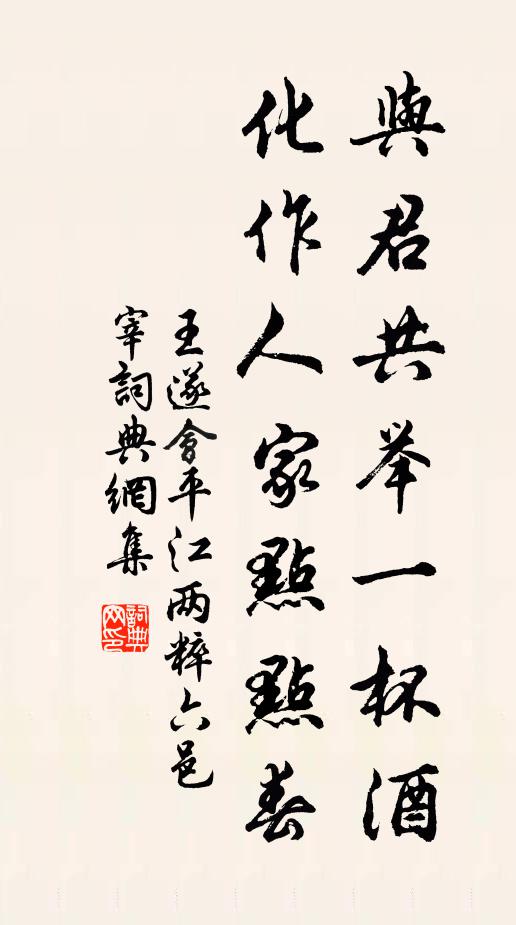 與君共举一杯酒
化作人家點點春
王遂會平江两粹六邑
宰詞典網集
詞典网印